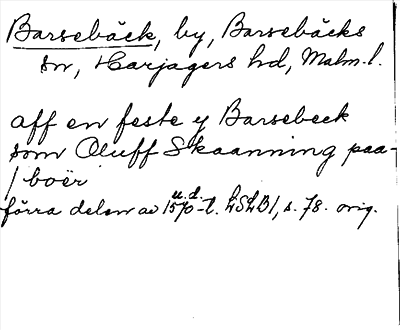 Barsebäck, by, Barsebäcks
sn, Harjagers hd, Malm. l.
aff en feste y Barsebeck
som Oluff Skaanning paa-
/ boër
u. d.
förra delen av 1570-t. LSLB1, s. 78. orig.